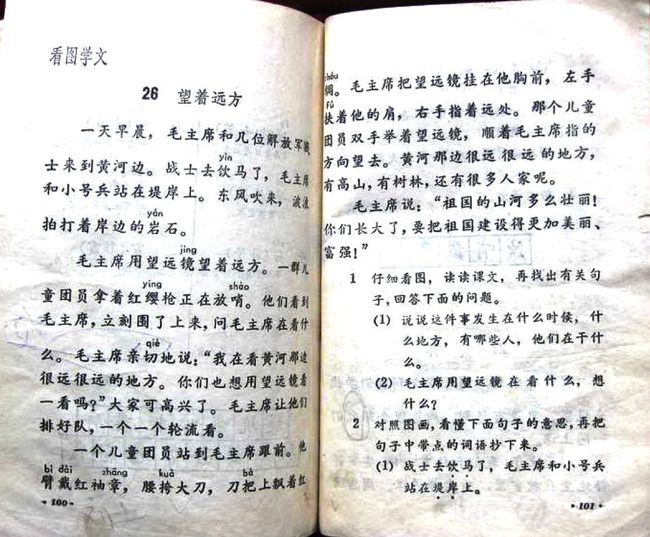 看图学文
26 望着远方
一天早晨，毛主席和几位解放军战
士来到黄河边。战士去饮马了，毛主席
yìn
和小号兵站在堤岸上。东风吹来，波浪
拍打着岸边的岩石。
yán
毛主席用望远镜望着远方。一群儿
jìng
童团员拿着红缨枪正在放哨。他们看到
yīng shào
毛主席，立刻围了上来，问毛主席在看什
么。毛主席亲切地说：“我在看黄河那边
qiè
很远很远的地方。你们也想用望远镜看
一看吗？”大家可高兴了。毛主席让他们
排好队，一个一个轮流看。
一个儿童团员站到毛主席跟前。他
臂戴红袖章，腰挎大刀，刀把上飘着红
bì dài zhāng kuà bà
·100·
chóu
绸。毛主席把望远镜挂在他胸前，左手
扶着他的肩，右手指着远处。那个儿童
fú
团员双手举着望远镜，顺着毛主席指的
方向望去。黄河那边很远很远的地方，
有高山，有树林，还有很多人家呢。
毛主席说：“祖国的山河多么壮丽！
你们长大了，要把祖国建设得更加美丽、
富强！”
1 仔细看图，读读课文，再找出有关句
子，回答下面的问题。
(1) 说说这件事发生在什么时候，什
么地方，有哪些人，他们在干什
么。
(2) 毛主席用望远镜在看什么，想
什么？
2 对照图画，看懂下面句子的意思，再把
句子中带点的词语抄下来。
(1) 战士去饮马了，毛主席和小号兵
站在堤岸上。
·101·